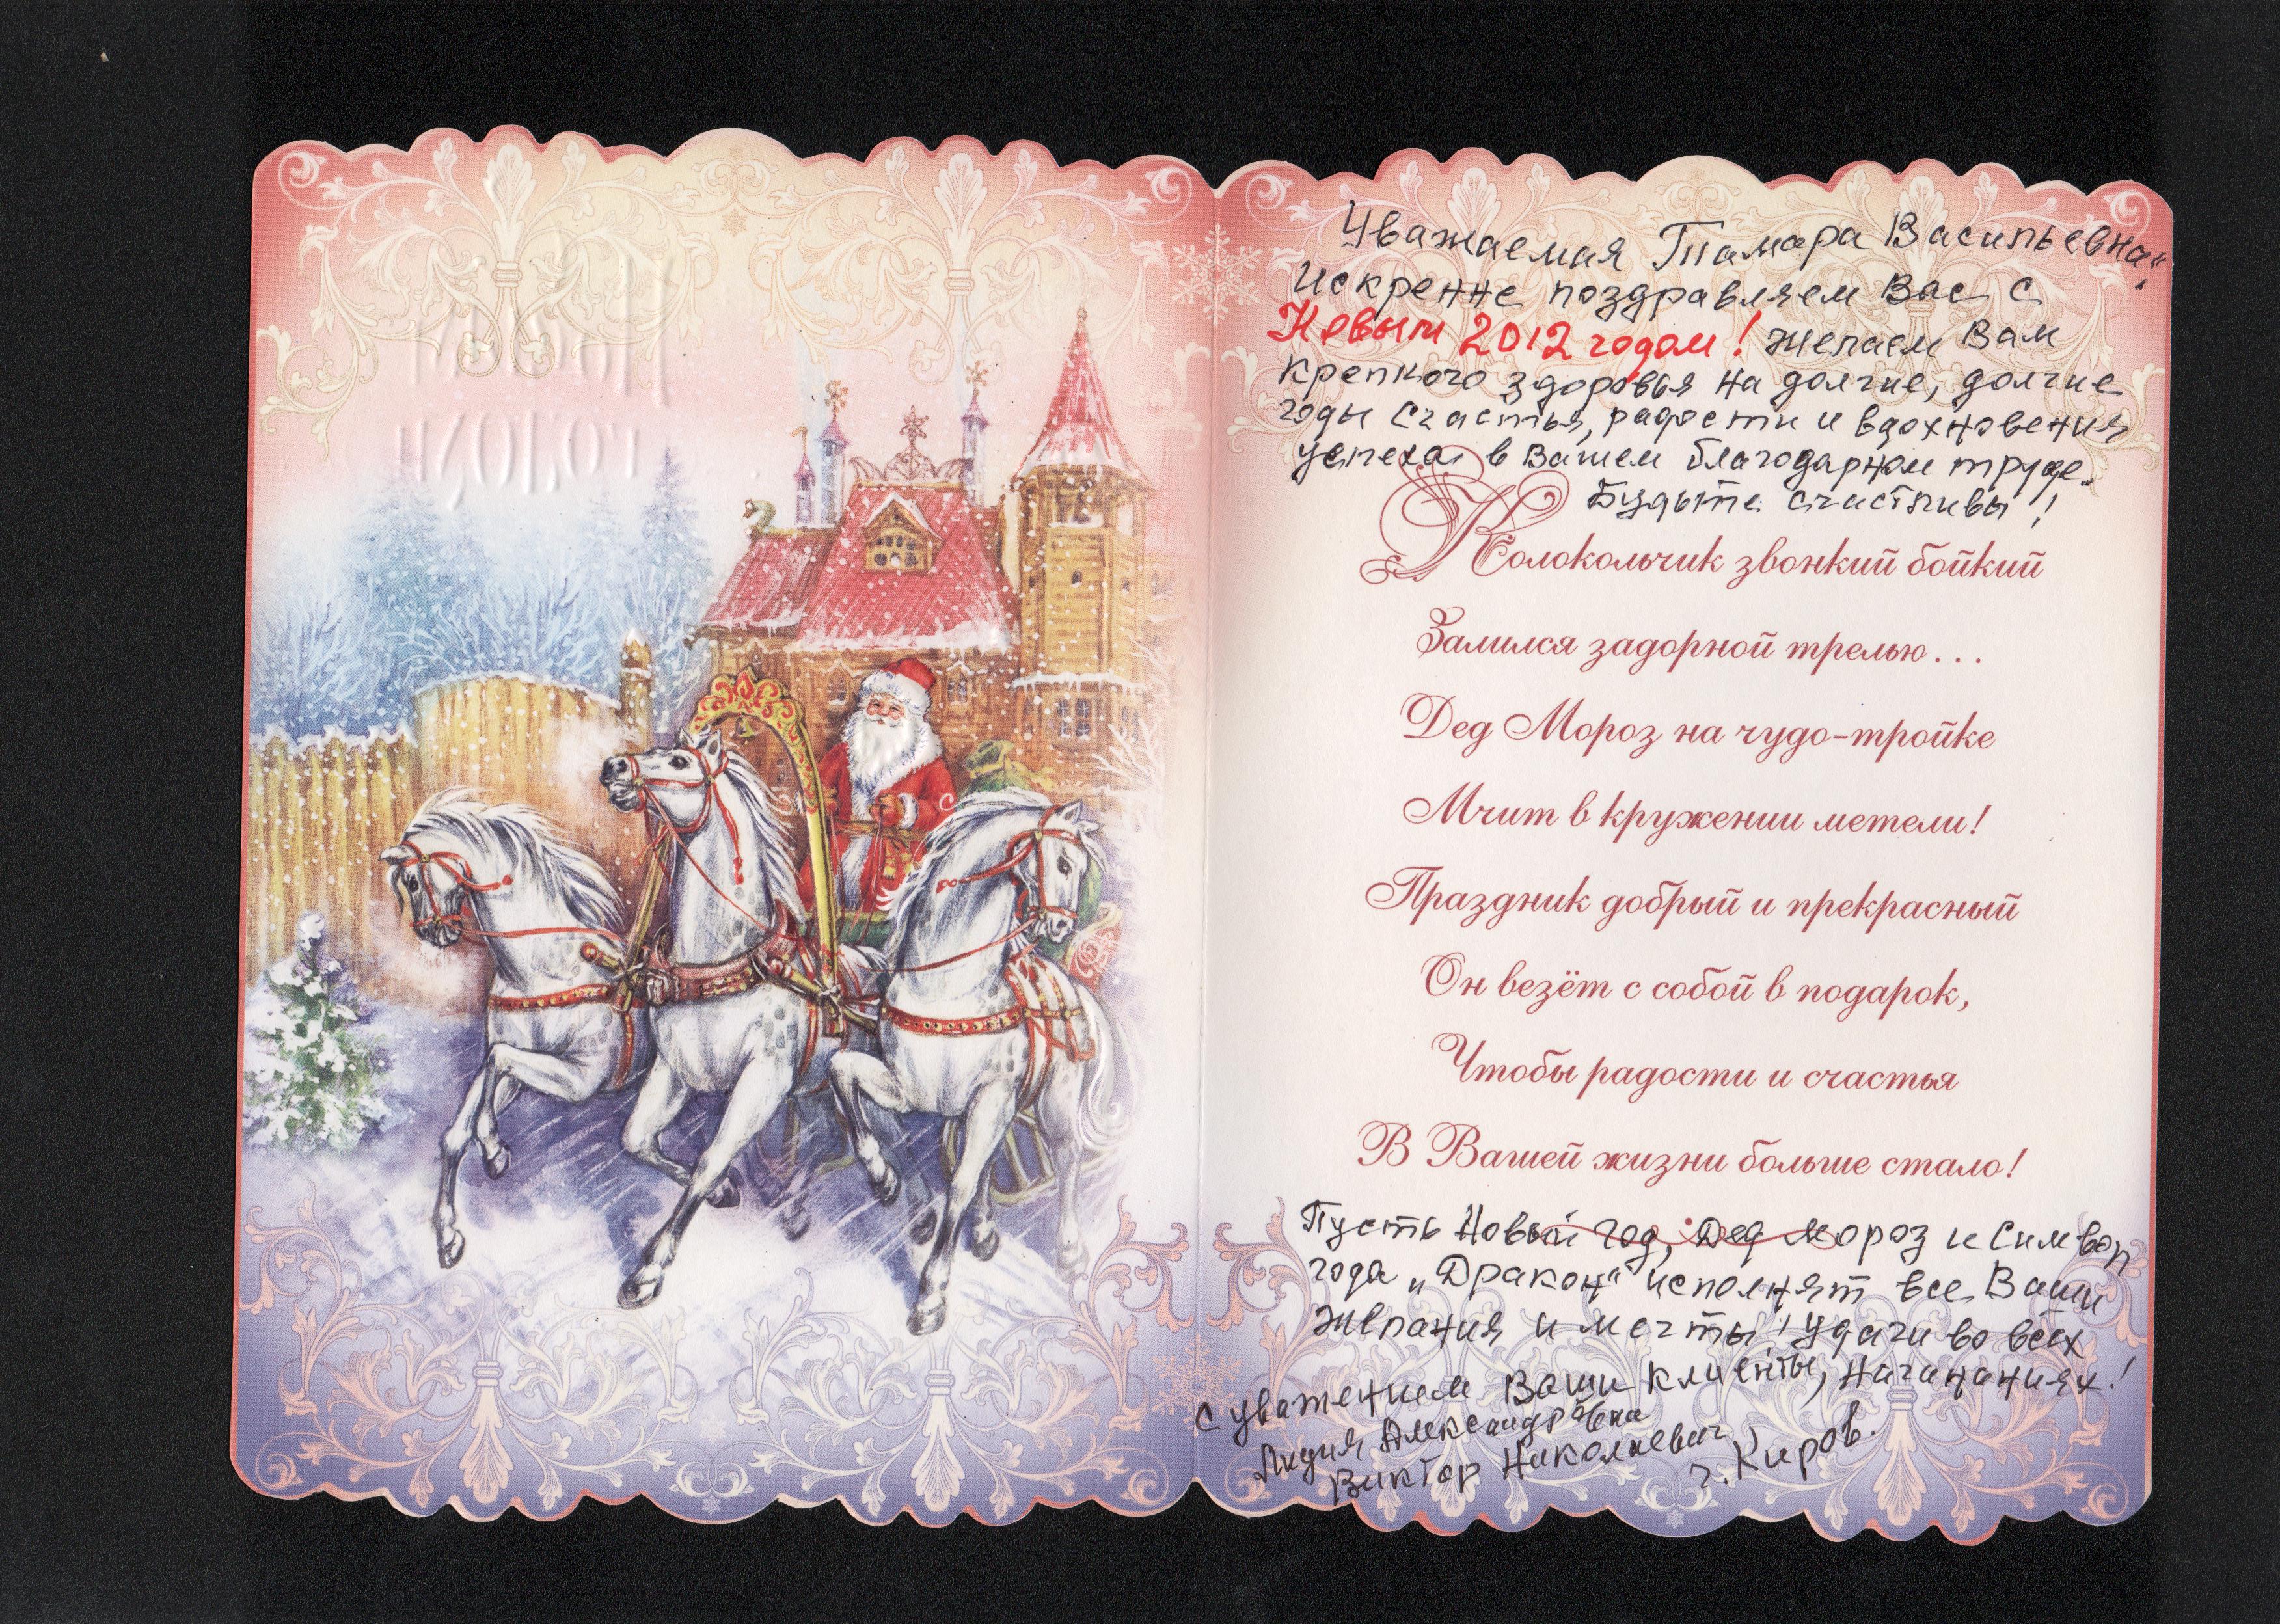 Уважаемая Тамара Васильевна!
Искренне поздравляем Вас с
Новым 2012 годом! Желаем Вам
крепкого здоровья на долгие, долгие
годы счастья, радости и вдохновения
успеха в Вашем благодарном труде.
Будьте счастливы!
Колокольчик звонкий бойкий
Залился задорной трелью...
Дед Мороз на чудо-тройке
Мчит в кружении метели!
Праздник добрый и прекрасный
Он везёт с собой в подарок,
Чтобы радости и счастья
В Вашей жизни больше стало!
Пусть Новый год, Дед Мороз и символ
года „Дракон" исполнят все Ваши
желания и мечты! Удачи во всех
начинаниях!
С уважением Ваши клиенты,
Лидия Александровна
Виктор Николаевич
г. Киров.